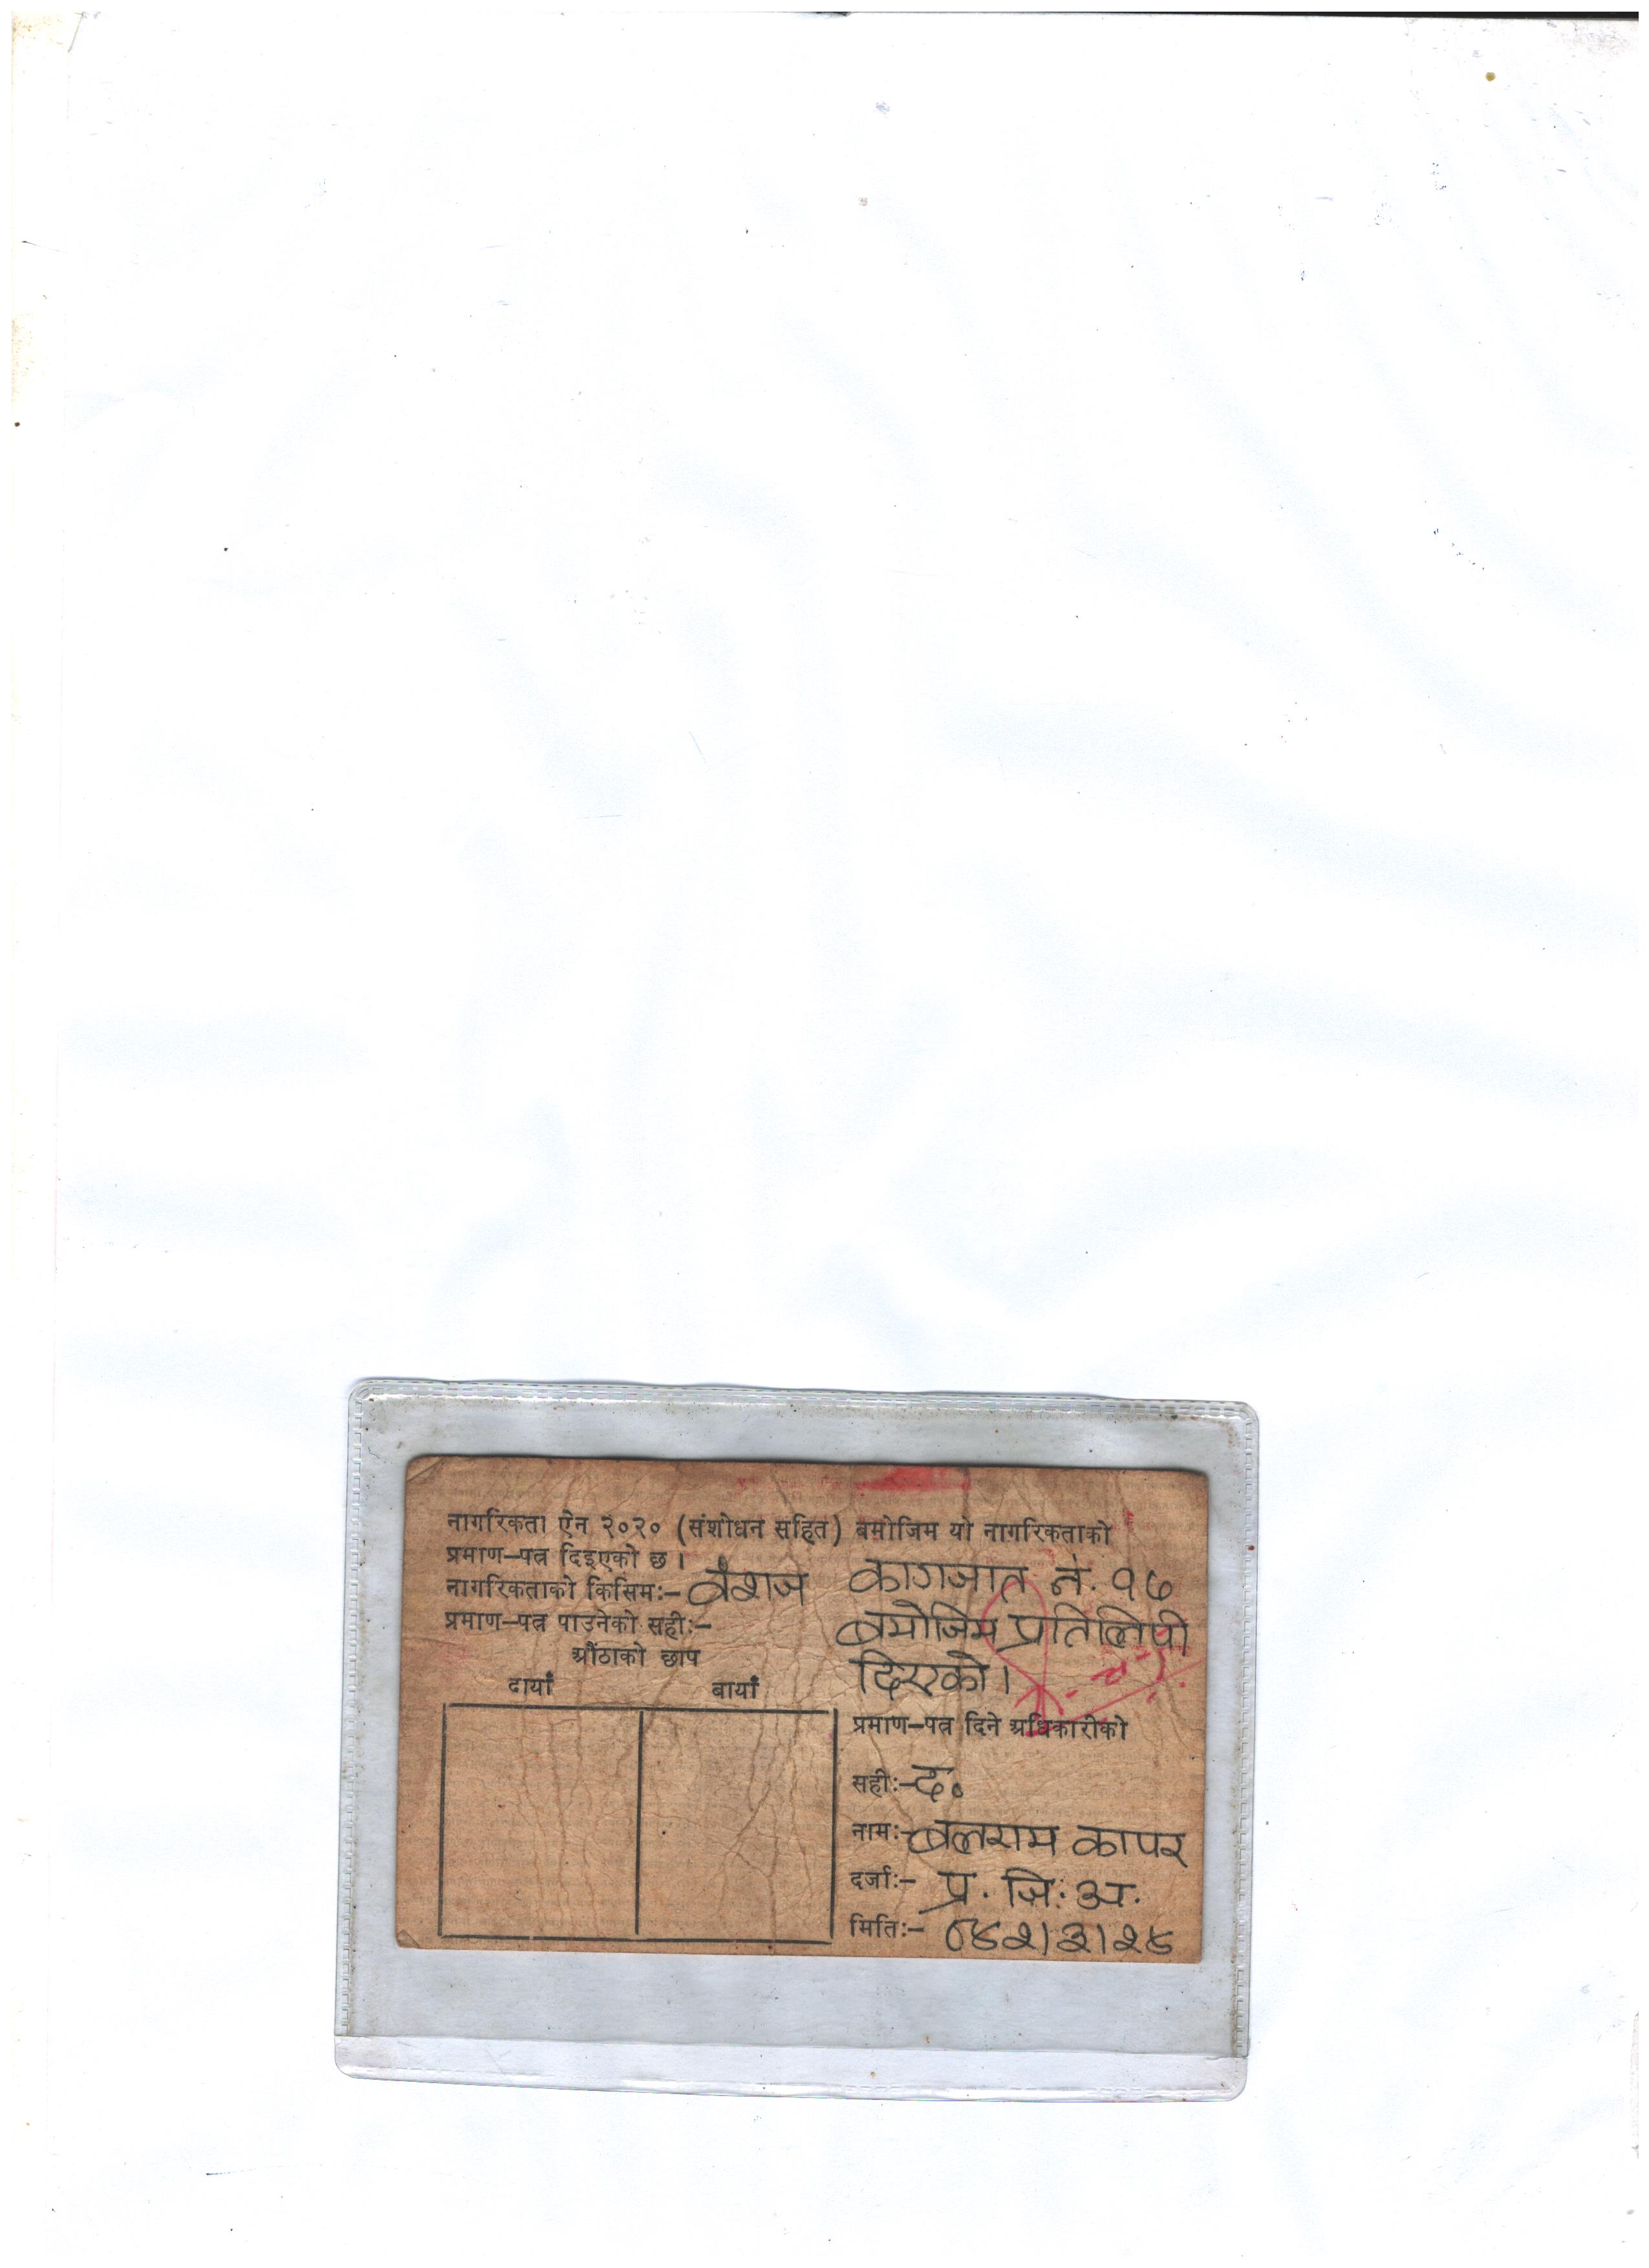 नागरिकता ऐन २०२० (संशोधन सहित) बमोजिम यो नागरिकताको
प्रमाण-पत्र दिइएको छ।
नागरिकताको किसिमः- वंशज
प्रमाण-पत्र पाउनेको सहीः-
औंठाको छाप
दायाँ बायाँ
कागजात नं. १७
बमोजिम प्रतिलिपी
दिएको।
प्रमाण-पत्र दिने अधिकारीको
सहीः- द०
नामः- बलराम कापर
दर्जाः- प्र. जि. अ.
मितिः-